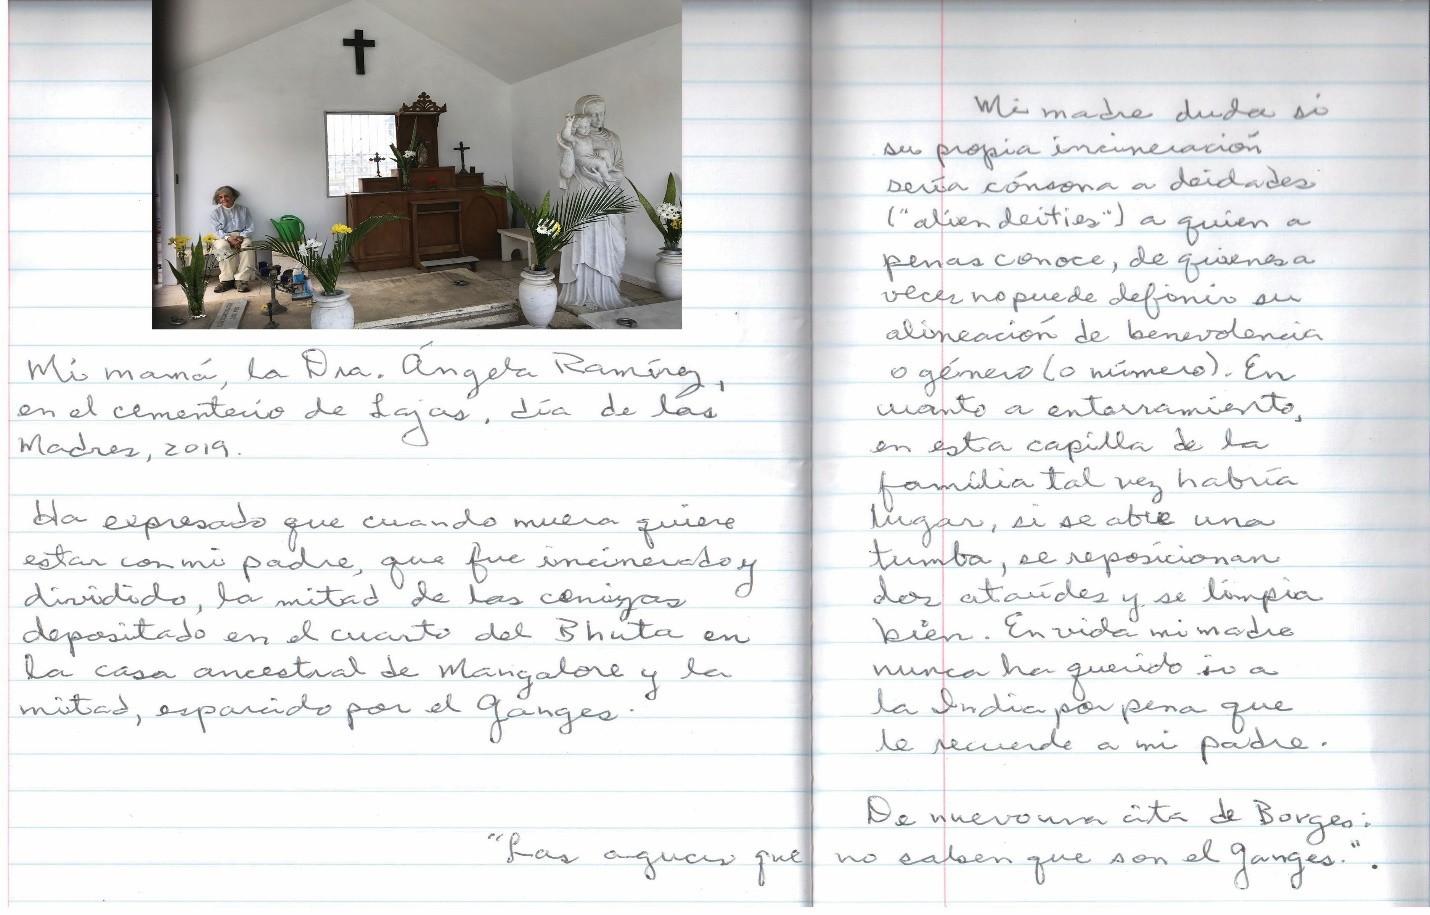 Mi mamá, la Dra. Ángela Ramírez,
en el cementerio de Lajas, día de las
Madres, 2019.
Ha expresado que cuando muera quiere
estar con mi padre, que fue incinerado y
dividido, la mitad de las cenizas
depositado en el cuarto del Bhuta en
la casa ancestral de Mangalore y la
mitad, esparcido por el Ganges.
Mi madre duda si
su propia incineración
sería cónsona a deidades
("alien deities") a quien a
penas conoce, de quienes a
veces no puede definir su
alineación de benevolencia
o género (o número). En
cuanto a enterramiento,
en esta capilla de la
familia tal vez habría
lugar, si se abre una
tumba, se reposicionan
dos ataúdes y se limpia
bien. En vida mi madre
nunca ha querido ir a
la India por pena que
le recuerde a mi padre.
De nuevo una cita de Borges:
"Las aguas que no saben que son el Ganges.".